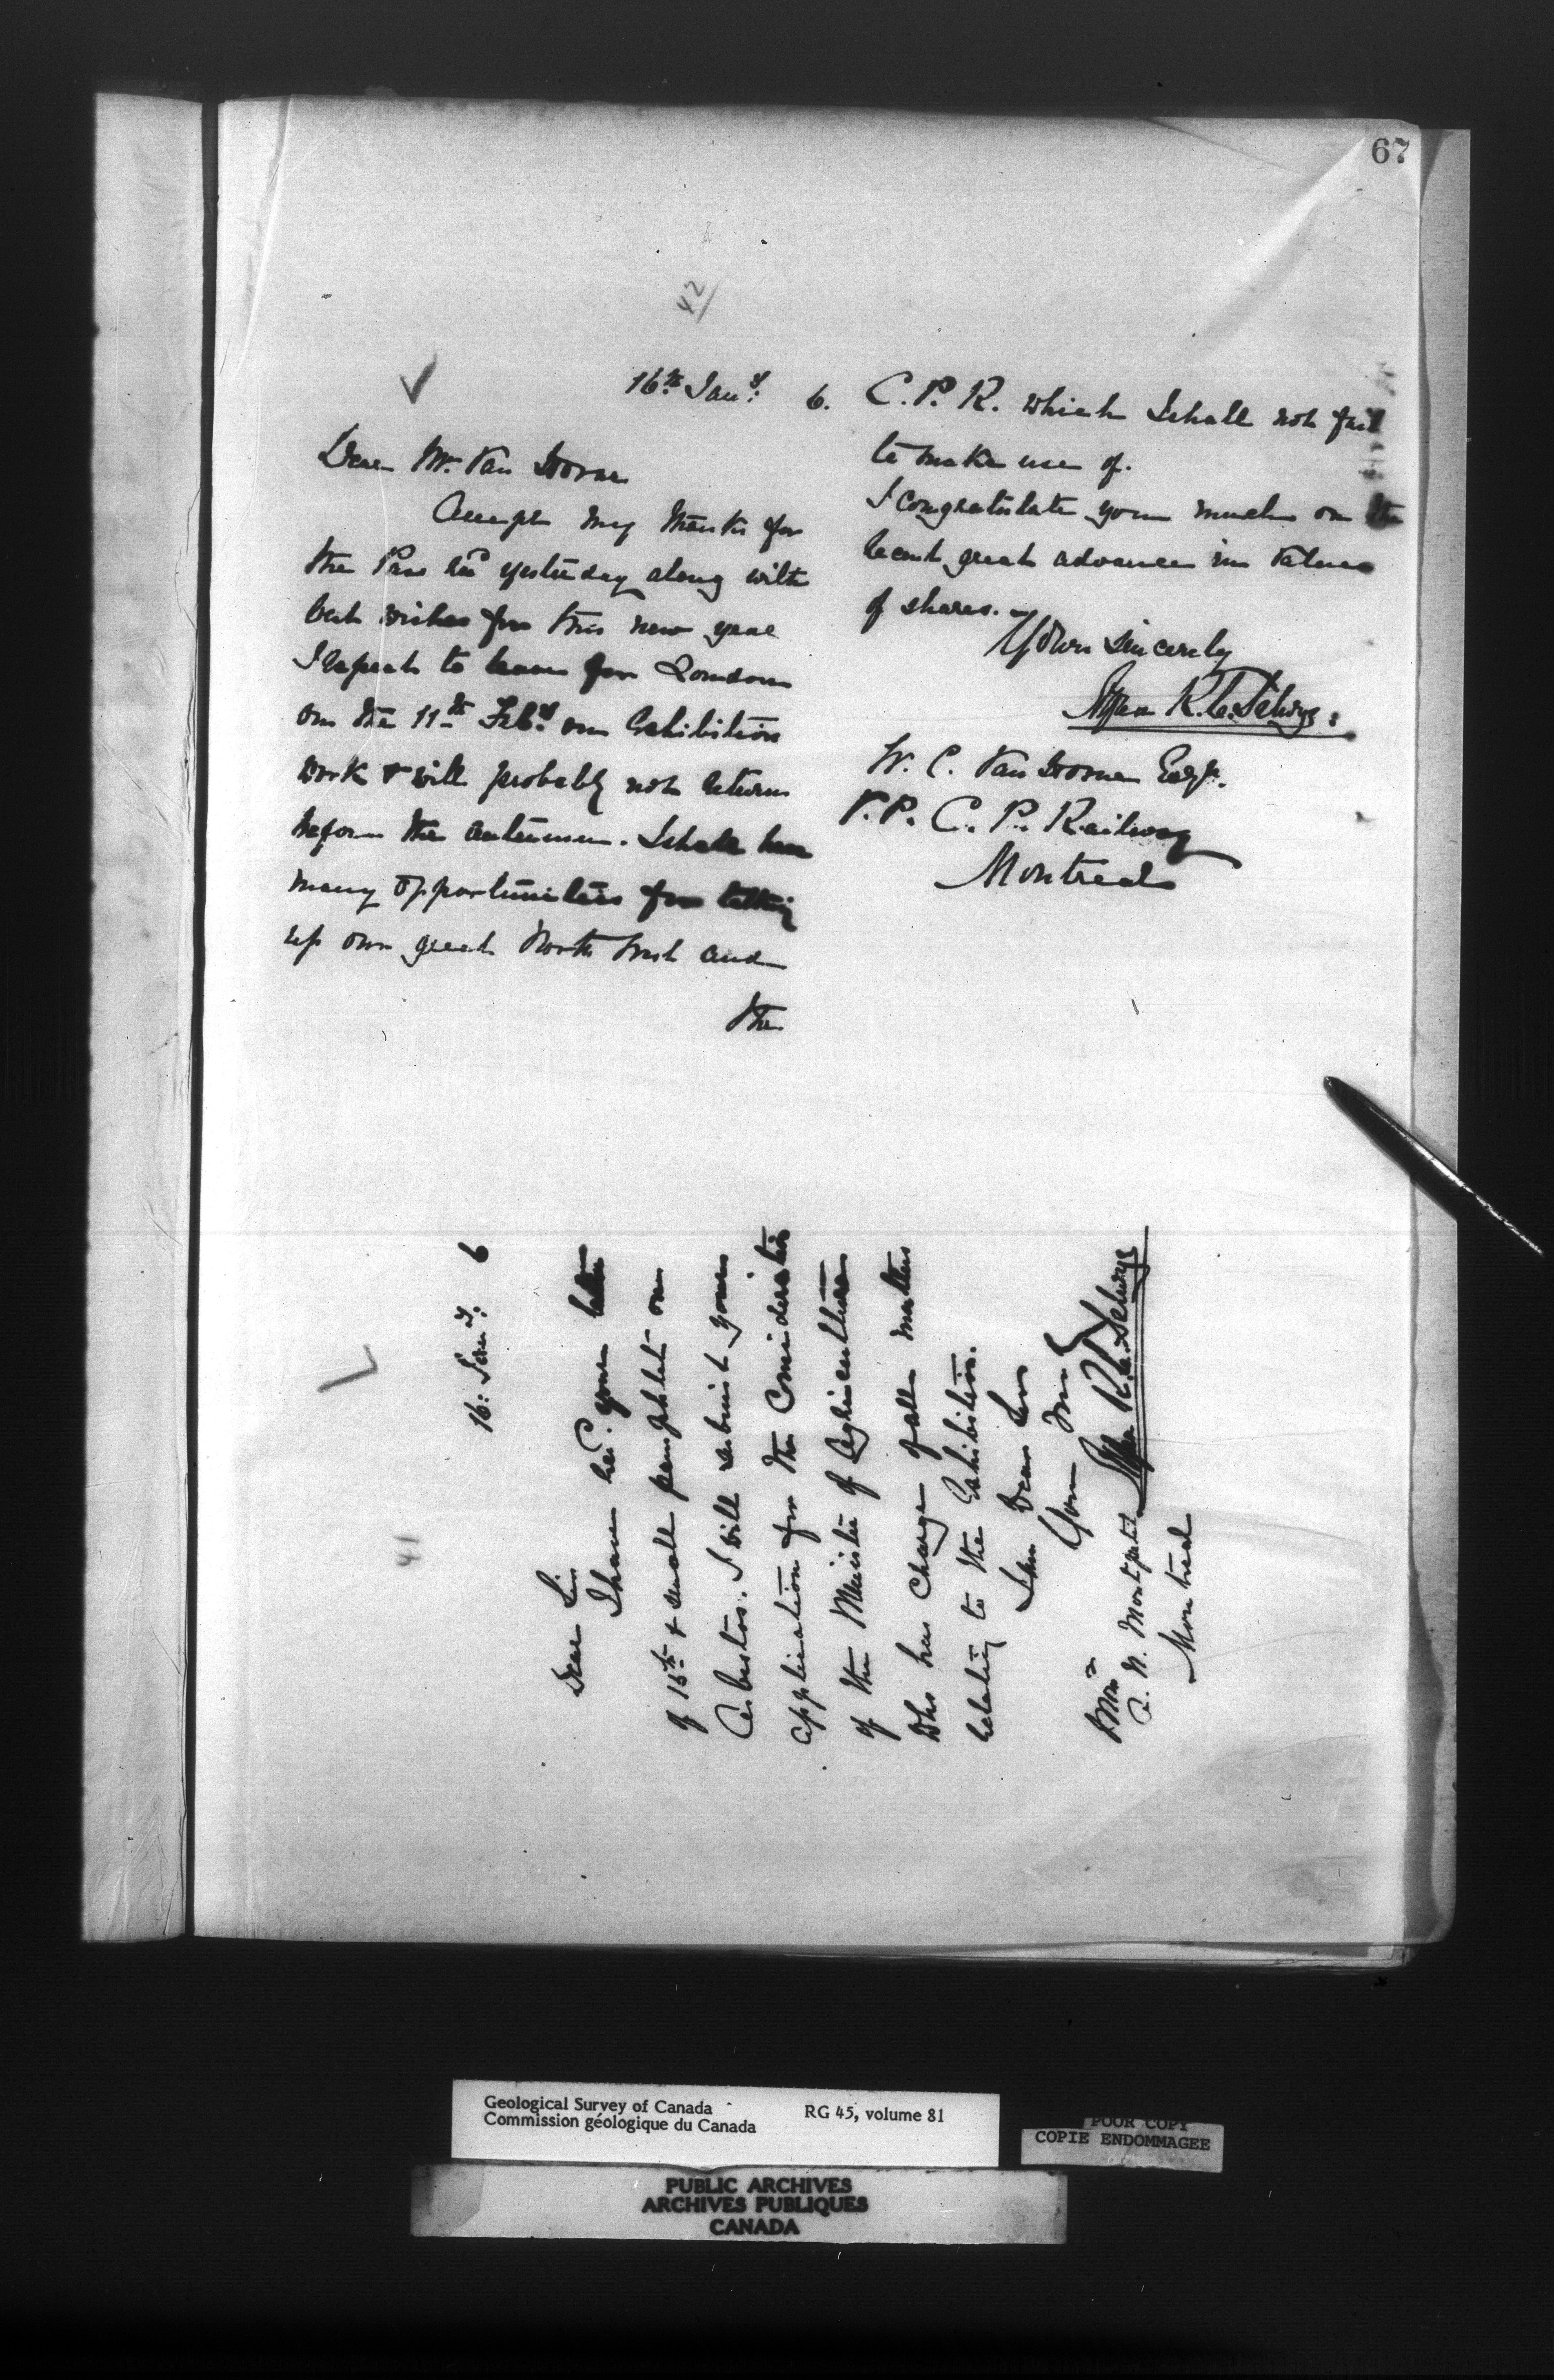 67
42
16th Jany. 6.
Dear Mr. Van Horne
Accept my thanks for
the Pass recd yesterday along with
best wishes for this new year
I expect to leave for London
on the 11th Feby. on Exhibition
work & will probably not return
before the autumn. I shall have
many opportunities for talking
up our great North West and
the
C. P. R. which I shall not fail
to make use of.
I congratulate you much on the
recent great advance in value
of shares.
Yours sincerely
Alfred R. C. Selwyn
W. C. Van Horne Esqr.
V. P. C. P. Railway
Montreal
41
16: Jany. 6
Dear Sir
I have recd. your letter
of 15th & small pamphlet on
Asbestos. I will submit your
application for the consideration
of the Minister of Agriculture
who has charge of all matters
relating to the Exhibition.
I am Dear Sir
Yours truly
Alfred R. C. Selwyn
A. N. Montpetit
Montreal
Geological Survey of Canada
Commission géologique du Canada
RG 45, volume 81
POOR COPY
COPIE ENDOMMAGEE
PUBLIC ARCHIVES
ARCHIVES PUBLIQUES
CANADA